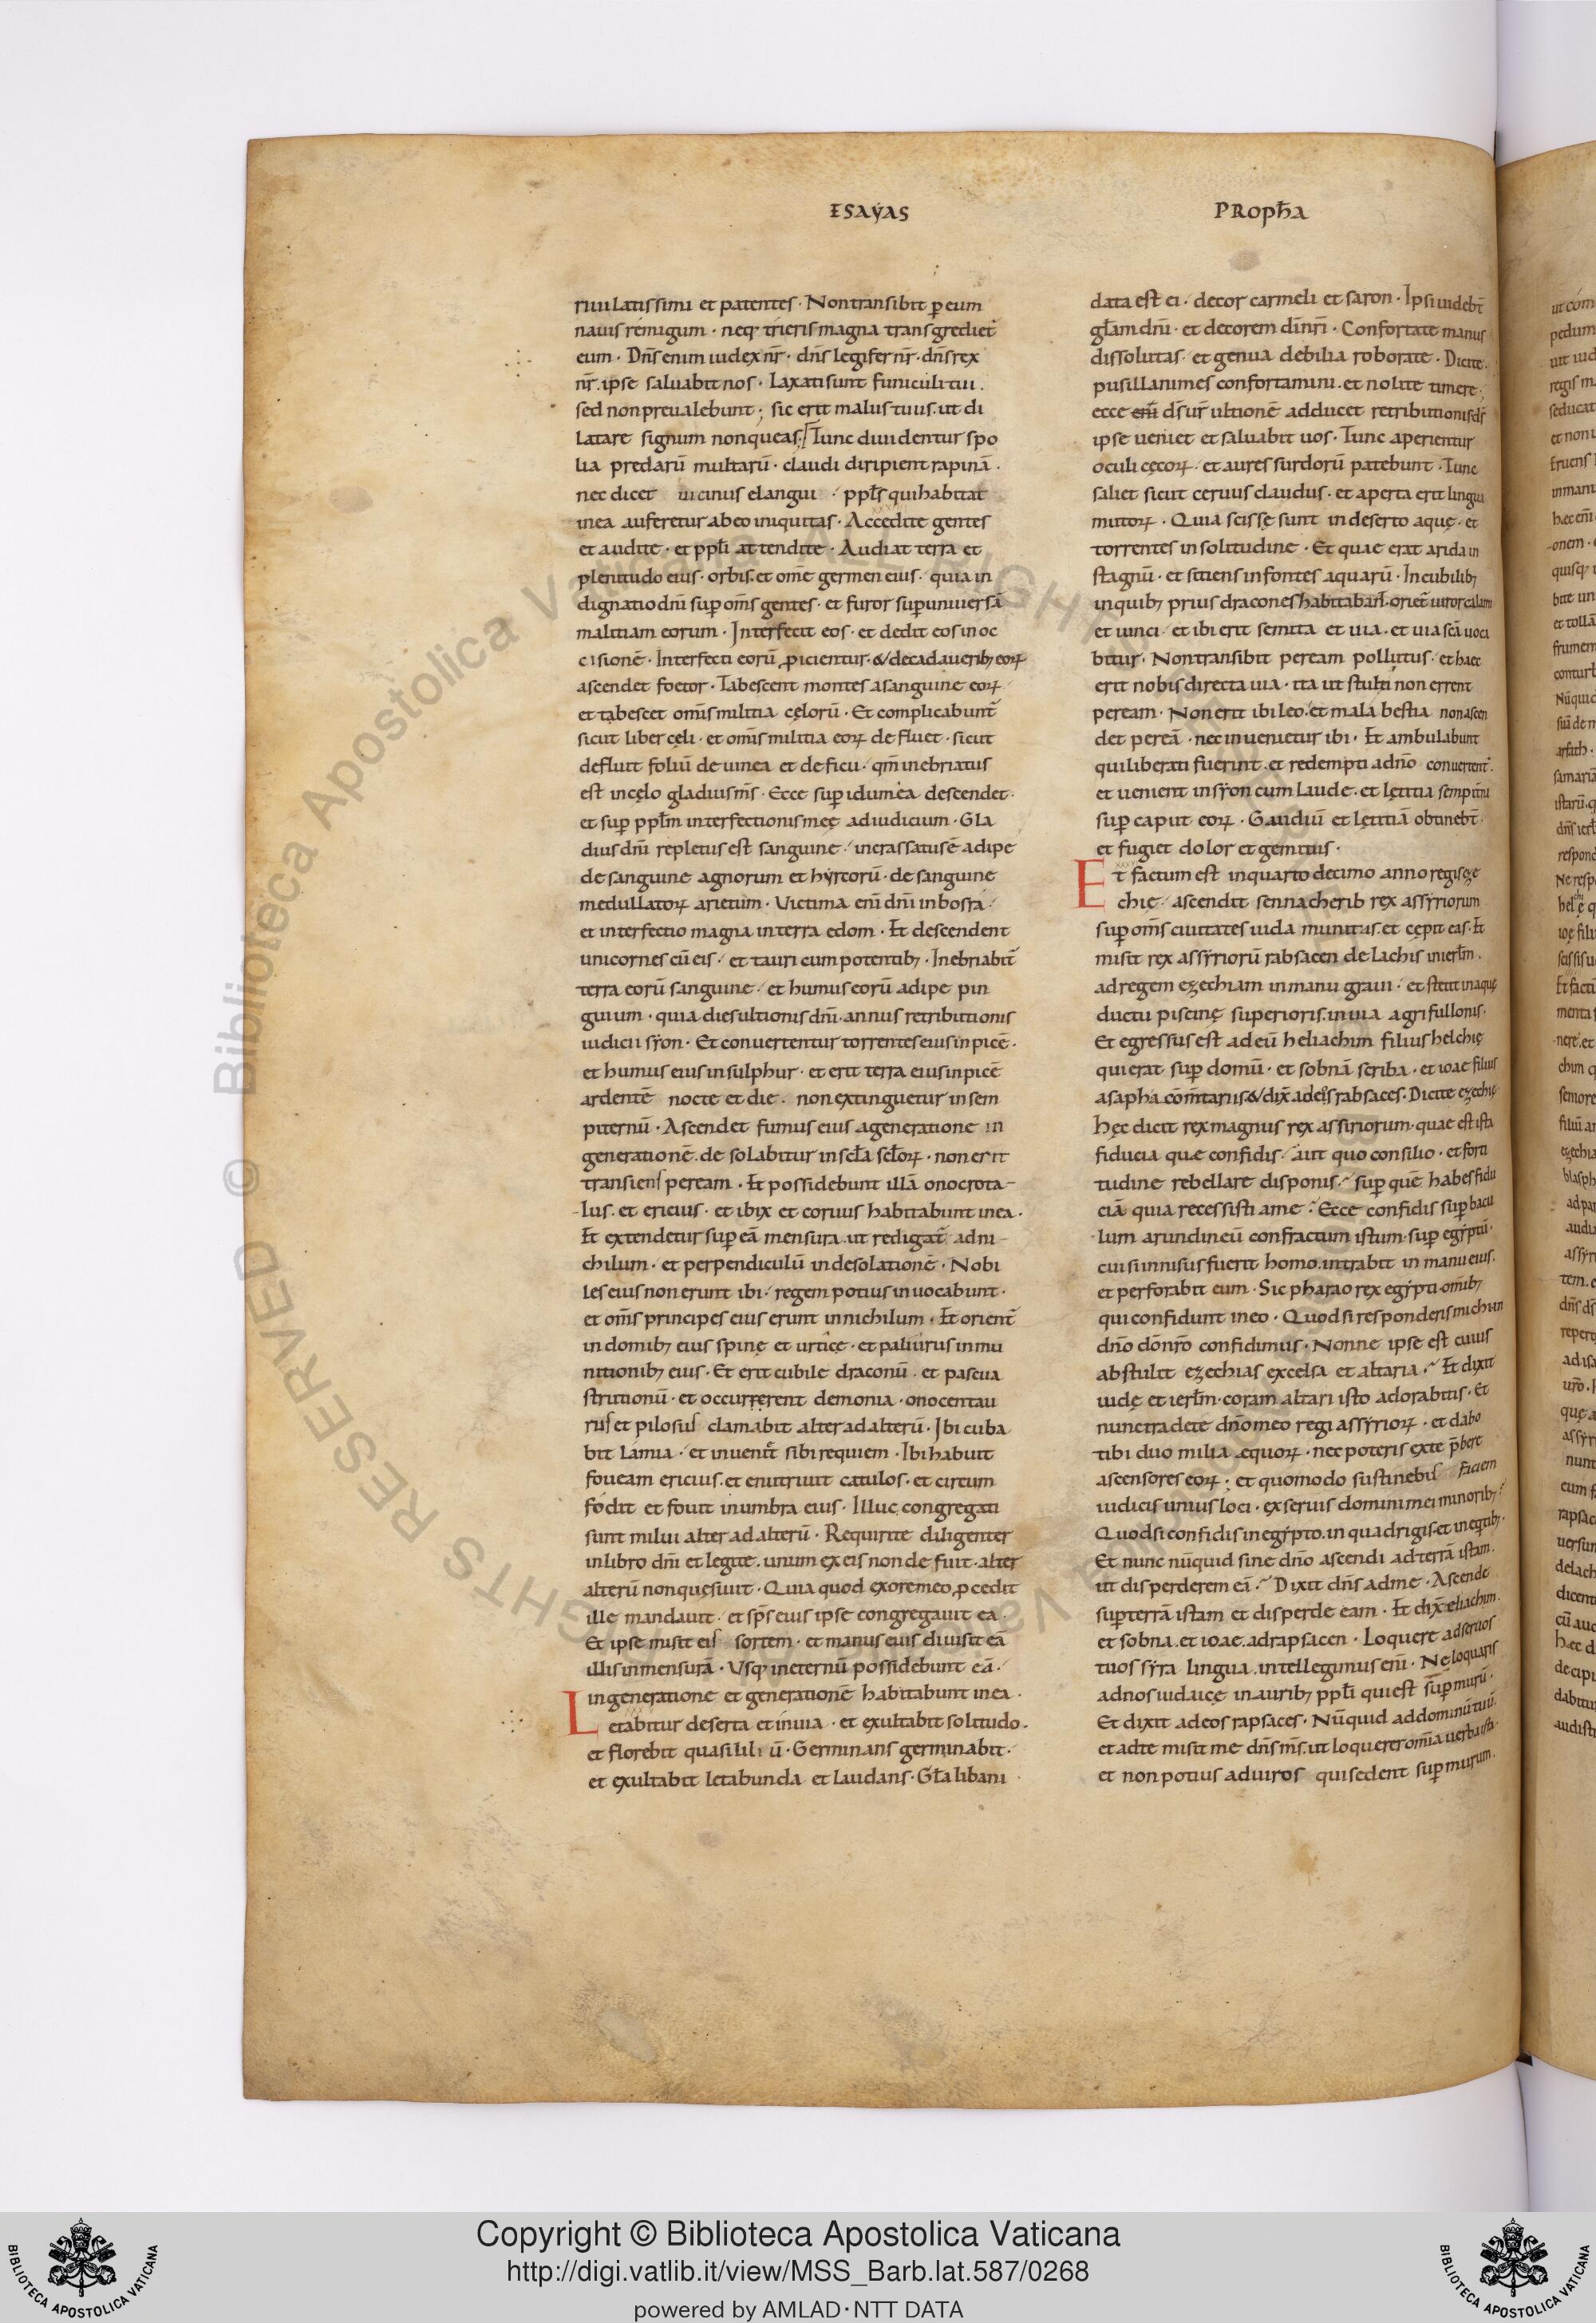 ESAẏAS
PROpħA
riui latissimi et patentes · Non transibit p̲ eum
nauis remigum · neq; trieris magna transgrediet᷑
eum · Dñs enim iudex nr̄ · dñs legifer nr̄ · dñs rex
nr̄ . ipse saluabit nos · Laxati sunt funiculi tui .
sed non preualebunt ; sic erit malus tuus . ut di
latare signum non queas . Tunc diuidentur spo
lia predarū multarū · claudi diripient rapinā .
nec dicet uicinus elangui · ppl̄s qui habitat
in ea auferetur ab eo iniquitas · Accedite gentes
et audite · et ppl̄i attendite · Audiat terra et
plenitudo eius · orbis . et om̄e germen eius · quia in
dignatio dñi sup̱ om̄s gentes · et furor sup̱ uniuersā
malitiam eorum · Interfecit eos · et dedit eos in oc
cisionē · Interfecti eorū ꝓicientur · & de cadauerib; eoꝝ
ascendet foetor · Tabescent montes a sanguine eoꝝ
et tabescet om̄is militia cęlorū · Et complicabunt᷑
sicut liber cęli · et om̄is militia eoꝝ defluet · sicut
defluit foliū de uinea et de ficu · qm̄ inebriatus
est in cęlo gladius m̄s · Ecce sup̱ idumea descendet ·
et sup̱ ppl̄m interfectionis meę ad iudicium · Gla
dius dñi repletus est sanguine · incrassatus ē adipe
de sanguine agnorum et hẏrcorū · de sanguine
medullatoꝝ arietum · Victima eni̅ dñi in bosra ·
et interfectio magna in terra edom · Et descendent
unicornes cū eis · et tauri cum potentib; · Inebriabit᷑
terra eorū sanguine · et humus eorū adipe pin
guium · quia dies ultionis dñi · annus retributionis
iudicii sẏon · Et conuertentur torrentes eius in picē ·
et humus eius in sulphur · et erit terra eius in picē
ardentē nocte et die · non extinguetur in sem
piternū · Ascendet fumus eius a generatione in
generationē . desolabitur in scl̄a scl̄oꝝ · non erit
transiens per eam · Et possidebunt illā onocrota-
-lus . et ericius · et ibix et coruus habitabunt in ea ·
Et extendetur sup̱ eā mensura . ut redigat᷑ ad ni-
chilum · et perpendiculū in desolationē · Nobi
les eius non erunt ibi · regem potius inuocabunt ·
et om̄s principes eius erunt in nichilum · Et orient᷑
in domib; eius spinę et urticę · et paliurus in mu
nitionib; eius · Et erit cubile draconū · et pascua
strutionū · et occurrerent demonia · onocentau
rus et pilosus clamabit alter ad alterū · Ibi cuba
bit lamia · et inuenit᷑ sibi requiem · Ibi habuit
foueam ericius . et enutriuit catulos · et circum
fodit et fouit in umbra eius · Illuc congregati
sunt milui alter ad alterū · Requirite diligenter
in libro dñi et legite . unum ex eis non defuit . alter
alterū non quęsiuit · Quia quod ex ore meo ꝓcedit
ille mandauit · et sp̄s eius ipse congregauit ea ·
Et ipse misit eis sortem · et manus eius diuisit eā
illis in mensurā · Vsq; in eternū possidebunt eā ·
in generatione et generationē habitabunt in ea ·
Letabitur deserta et inuia · et exultabit solitudo ·
et florebit quasi liliū · Germinans germinabit ·
et exultabit letabunda et laudans · Gl̄a libani
data est ei · decor carmeli et saron · Ipsi uidebt᷑
gl̄am dñi · et decorem di̅ nr̄i · Confortate manus
dissolutas · et genua debilia roborate · Dicite
pusillanimes confortamini . et nolite timere ;
ecce eni̅ ds̄ ur̄ ultionē adducet retributionis ds̄
ipse ueniet et saluabit uos · Tunc aperientur
oculi cęcoꝝ · et aures surdorū patebunt · Tunc
saliet sicut ceruus claudus · et aperta erit lingua
mutoꝝ · Quia scissę sunt in deserto aquę · et
torrentes in solitudine · Et quae erat arida in
stagnū · et sitiens in fontes aquarū · In cubilib;
in quib; prius dracones habitabant . oriet᷑ uiror calami
et iunci · et ibi erit semita et uia · et uia scā uoca
bitur · Non transibit per eam pollutus · et haec
erit nobis directa uia · ita ut stulti non errent
per eam · Non erit ibi leo . et mala bestia non ascen
det per eā · nec inuenietur ibi · Et ambulabunt
qui liberati fuerint . et redempti a dño conuertent᷑ .
et uenient in sẏon cum laude . et lętitia sempitna
sup̱ caput eoꝝ · Gaudiū et lętitiā obtinebt᷑ ·
et fugiet dolor et gemitus ·
Et factum est in quarto decimo anno regis eze
chię · ascendit sennacherib rex assẏriorum
sup̱ om̄s ciuitates iuda munitas . et cępit eas . Et
misit rex assẏriorū rabsacen de lachis in ierl̄m .
ad regem ezechiam in manu graui · et stetit in aquę
ductu piscinę superioris . in uia agri fullonis ·
Et egressus est ad eū heliachim filius helchię
qui erat sup̱ domū · et sobnā scriba · et ioae filius
asapha com̄tariis & dix̄ ad eos rabsaces · Dicite ezechię
hęc dicit rex magnus rex assiriorum · quae est ista
fiducia qua confidis · aut quo consilio · et forti
tudine rebellare disponis · sup̱ quē habes fidu
ciā quia recessisti a me · Ecce confidis sup̱ bacu
lum arundineū confractum istum . sup̱ egẏptū ·
cui si innisus fuerit homo . intrabit in manu eius .
et perforabit eum · Sic pharao rex egẏpti om̄ib;
qui confidunt in eo · Quod si responderis michi in
dño dō nr̄o confidimus · Nonne ipse est cuius
abstulit ezechias excelsa et altaria · Et dixit
iudę et ierl̄m · coram altari isto adorabitis · Et
nunc tradete dño meo regi assẏrioꝝ · et dabo
tibi duo milia equoꝝ · nec poteris ex te p̄bere
ascensores eoꝝ ; et quomodo sustinebis faciem
iudicis unius loci · ex seruis domini mei minorib;
Quod si confidis in egẏpto . in quadrigis . et in eqtib; ·
Et nunc nūquid sine dño ascendi ad terrā istam .
ut disperderem eā · Dixit dñs ad me · Ascende
sup̱ terrā istam et disperde eam · Et dix̄ eliachim .
et sobna . et ioae . ad rapsacen · Loquere ad seruos
tuos sẏra lingua . intellegimus eni̅ · Ne loquaris
ad nos iudaicę in aurib; ppl̄i qui est sup̱ murū ·
Et dixit ad eos rapsaces · Nūquid ad dominū tuū
et ad te misit me dñs m̄s . ut loquerer om̄ia uerba ista ·
et non potius ad uiros qui sedent sup̱ murum ·
Copyright © Biblioteca Apostolica Vaticana
http://digi.vatlib.it/view/MSS_Barb.lat.587/0268
powered by AMLAD·NTT DATA